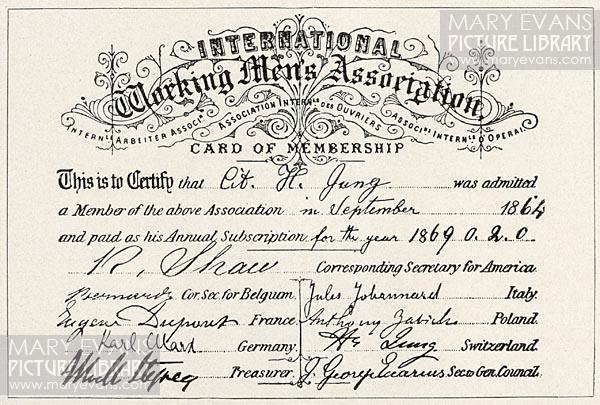 MARY EVANS
PICTURE LIBRARY
www.maryevans.com
INTERNATIONAL
Working Men's Association,
INTERN^LE ARBEITER ASSOC^N
ASSOCIATION INTERN^LE DES OUVRIERS
ASSOCI^NE INTERN^LE D'OPERAI
CARD OF MEMBERSHIP
This is to Certify that Cit. H. Jung was admitted
a Member of the above Association in September 1864
and paid as his Annual Subscription for the year 1869 0. 2. 0.
R. Shaw Corresponding Secretary for America.
Bernard Cor. Sec. for Belgium. Jules Johannard Italy.
Eugene Dupont France. Anthony Zabicki Poland.
Karl Marx Germany. H. Jung Switzerland.
Treasurer. J. George Eccarius Sec. to Gen. Council.
MARY EVANS
PICTURE LIBRARY
www.maryevans.com